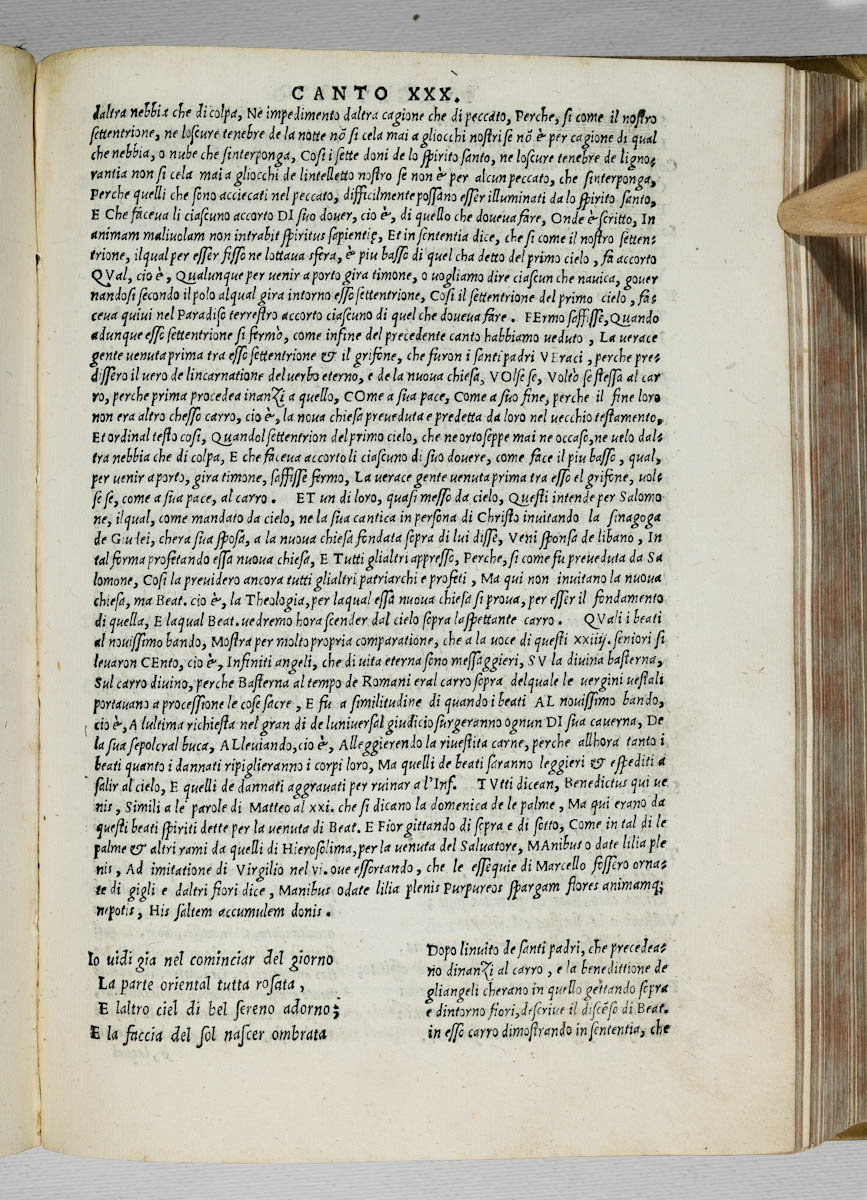 CANTO XXX.
daltra nebbia che di colpa, Ne impedimento daltra cagione che di peccato, Perche, si come il nostro
settentrione, ne loscure tenebre de la notte nõ si cela mai a gliocchi nostri se nõ è per cagione di qual
che nebbia, o nube che sinterponga, Cosi i sette doni de lo spirito santo, ne loscure tenebre de ligno-
rantia non si cela mai a gliocchi de lintelletto nostro se non è per alcun peccato, che sinterponga,
Perche quelli che sono acciecati nel peccato, difficilmente possano esser illuminati da lo spirito santo,
E Che faceva li ciascuno accorto DI suo dover, cio è, di quello che doueua fare, Onde è scritto, In
animam maliuolam non intrabit spiritus sapientię, Et in sententia dice, che si come il nostro setten-
trione, ilqual per esser fisso ne lottaua sfera, è piu basso di quel cha detto del primo cielo, fa accorto
QVal, cio è, Qualunque per venir a porto gira timone, o uogliamo dire ciascun che nauica, gouer
nandosi secondo il polo alqual gira intorno esso settentrione, Cosi il settentrione del primo cielo, fa-
ceua quiui nel Paradiso terrestro accorto ciascuno di quel che doueua fare. FErmo saffisse, Quando
adunque esso settentrione si fermò, come infine del precedente canto habbiamo ueduto, La uerace
gente uenuta prima tra esso settentrione & il grifone, che furon i santi padri VEraci, perche pre-
dissero il uero de lincarnatione del uerbo eterno, e de la nuoua chiesa, VOlse se, Voltò se stessa al car
ro, perche prima procedea inanzi a quello, COme a sua pace, Come a suo fine, perche il fine loro
non era altro chesso carro, cio è, la noua chiesa preueduta e predetta da loro nel uecchio testamento,
Et ordinal testo cosi, Quandol settentrion del primo cielo, che ne orto seppe mai ne occaso, ne uelo dal-
tra nebbia che di colpa, E che faceua accorto li ciascuno di suo douere, come face il piu basso, qual,
per uenir a porto, gira timone, saffisse fermo, La uerace gente uenuta prima tra esso el grifone, uol-
se se, come a sua pace, al carro. ET un di loro, quasi messo da cielo, Questi intende per Salomo
ne, il qual, come mandato da cielo, ne la sua cantica in persona di Christo inuitando la sinagoga
de Giudei, chera sua sposa, a la nuoua chiesa fondata sopra di lui disse, Veni sponsa de libano, In
tal forma profetando essa nuoua chiesa, E Tutti glialtri appresso, Perche, si come fu preueduta da Sa
lomone, Cosi la preuidero ancora tutti glialtri patriarchi e profeti, Ma qui non inuitano la nuoua
chiesa, ma Beat. cio è, la Theologia, per laqual essa nuoua chiesa si proua, per esser il fondamento
di quella, E laqual Beat. uedremo hora scender dal cielo sopra laspettante carro. QVali i beati
al nouissimo bando, Mostra per molto propria comparatione, che a la uoce di questi xxiiij. seniori si
leuaron CEnto, cio è, Infiniti angeli, che di uita eterna sono messaggieri, SV la diuina basterna,
Sul carro diuino, perche Basterna al tempo de Romani eral carro sopra delquale le uergini uestali
portauano a processione le cose sacre, E fu a similitudine di quando i beati AL nouissimo bando,
cio è, A lultima richiesta nel gran di de luniuersal giudicio surgeranno ognun DI sua cauerna, De
la sua sepolcral buca, ALleuiando, cio è, Alleggierendo la riuestita carne, perche allhora tanto i
beati quanto i dannati ripiglieranno i corpi loro, Ma quelli de beati saranno leggieri & espediti a
salir al cielo, E quelli de dannati aggrauati per ruinar a l'Inf. TVtti dicean, Benedictus qui ue
nis, Simili a le parole di Matteo al xxi. che si dicano la domenica de le palme, Ma qui erano da
questi beati spiriti dette per la uenuta di Beat. E Fior gittando di sopra e di sotto, Come in tal di le
palme & altri rami da quelli di Hierosolima, per la uenuta del Saluatore, MAnibus o date lilia ple
nis, Ad imitatione di Virgilio nel vi. oue essortando, che le essequie di Marcello fossero orna-
te di gigli e daltri fiori dice, Manibus odate lilia plenis Purpureos spargam flores animamq;
nepotis, His saltem accumulem donis.
Io uidi gia nel cominciar del giorno
La parte oriental tutta rosata,
E laltro ciel di bel sereno adorno;
E la faccia del sol nascer ombrata
Dopo linuito de santi padri, che precedea-
no dinanzi al carro, e la benedittione de
gliangeli cherano in quello gettando sopra
e dintorno fiori, descriue il discẽso di Beat.
in esso carro dimostrando in sententia, che